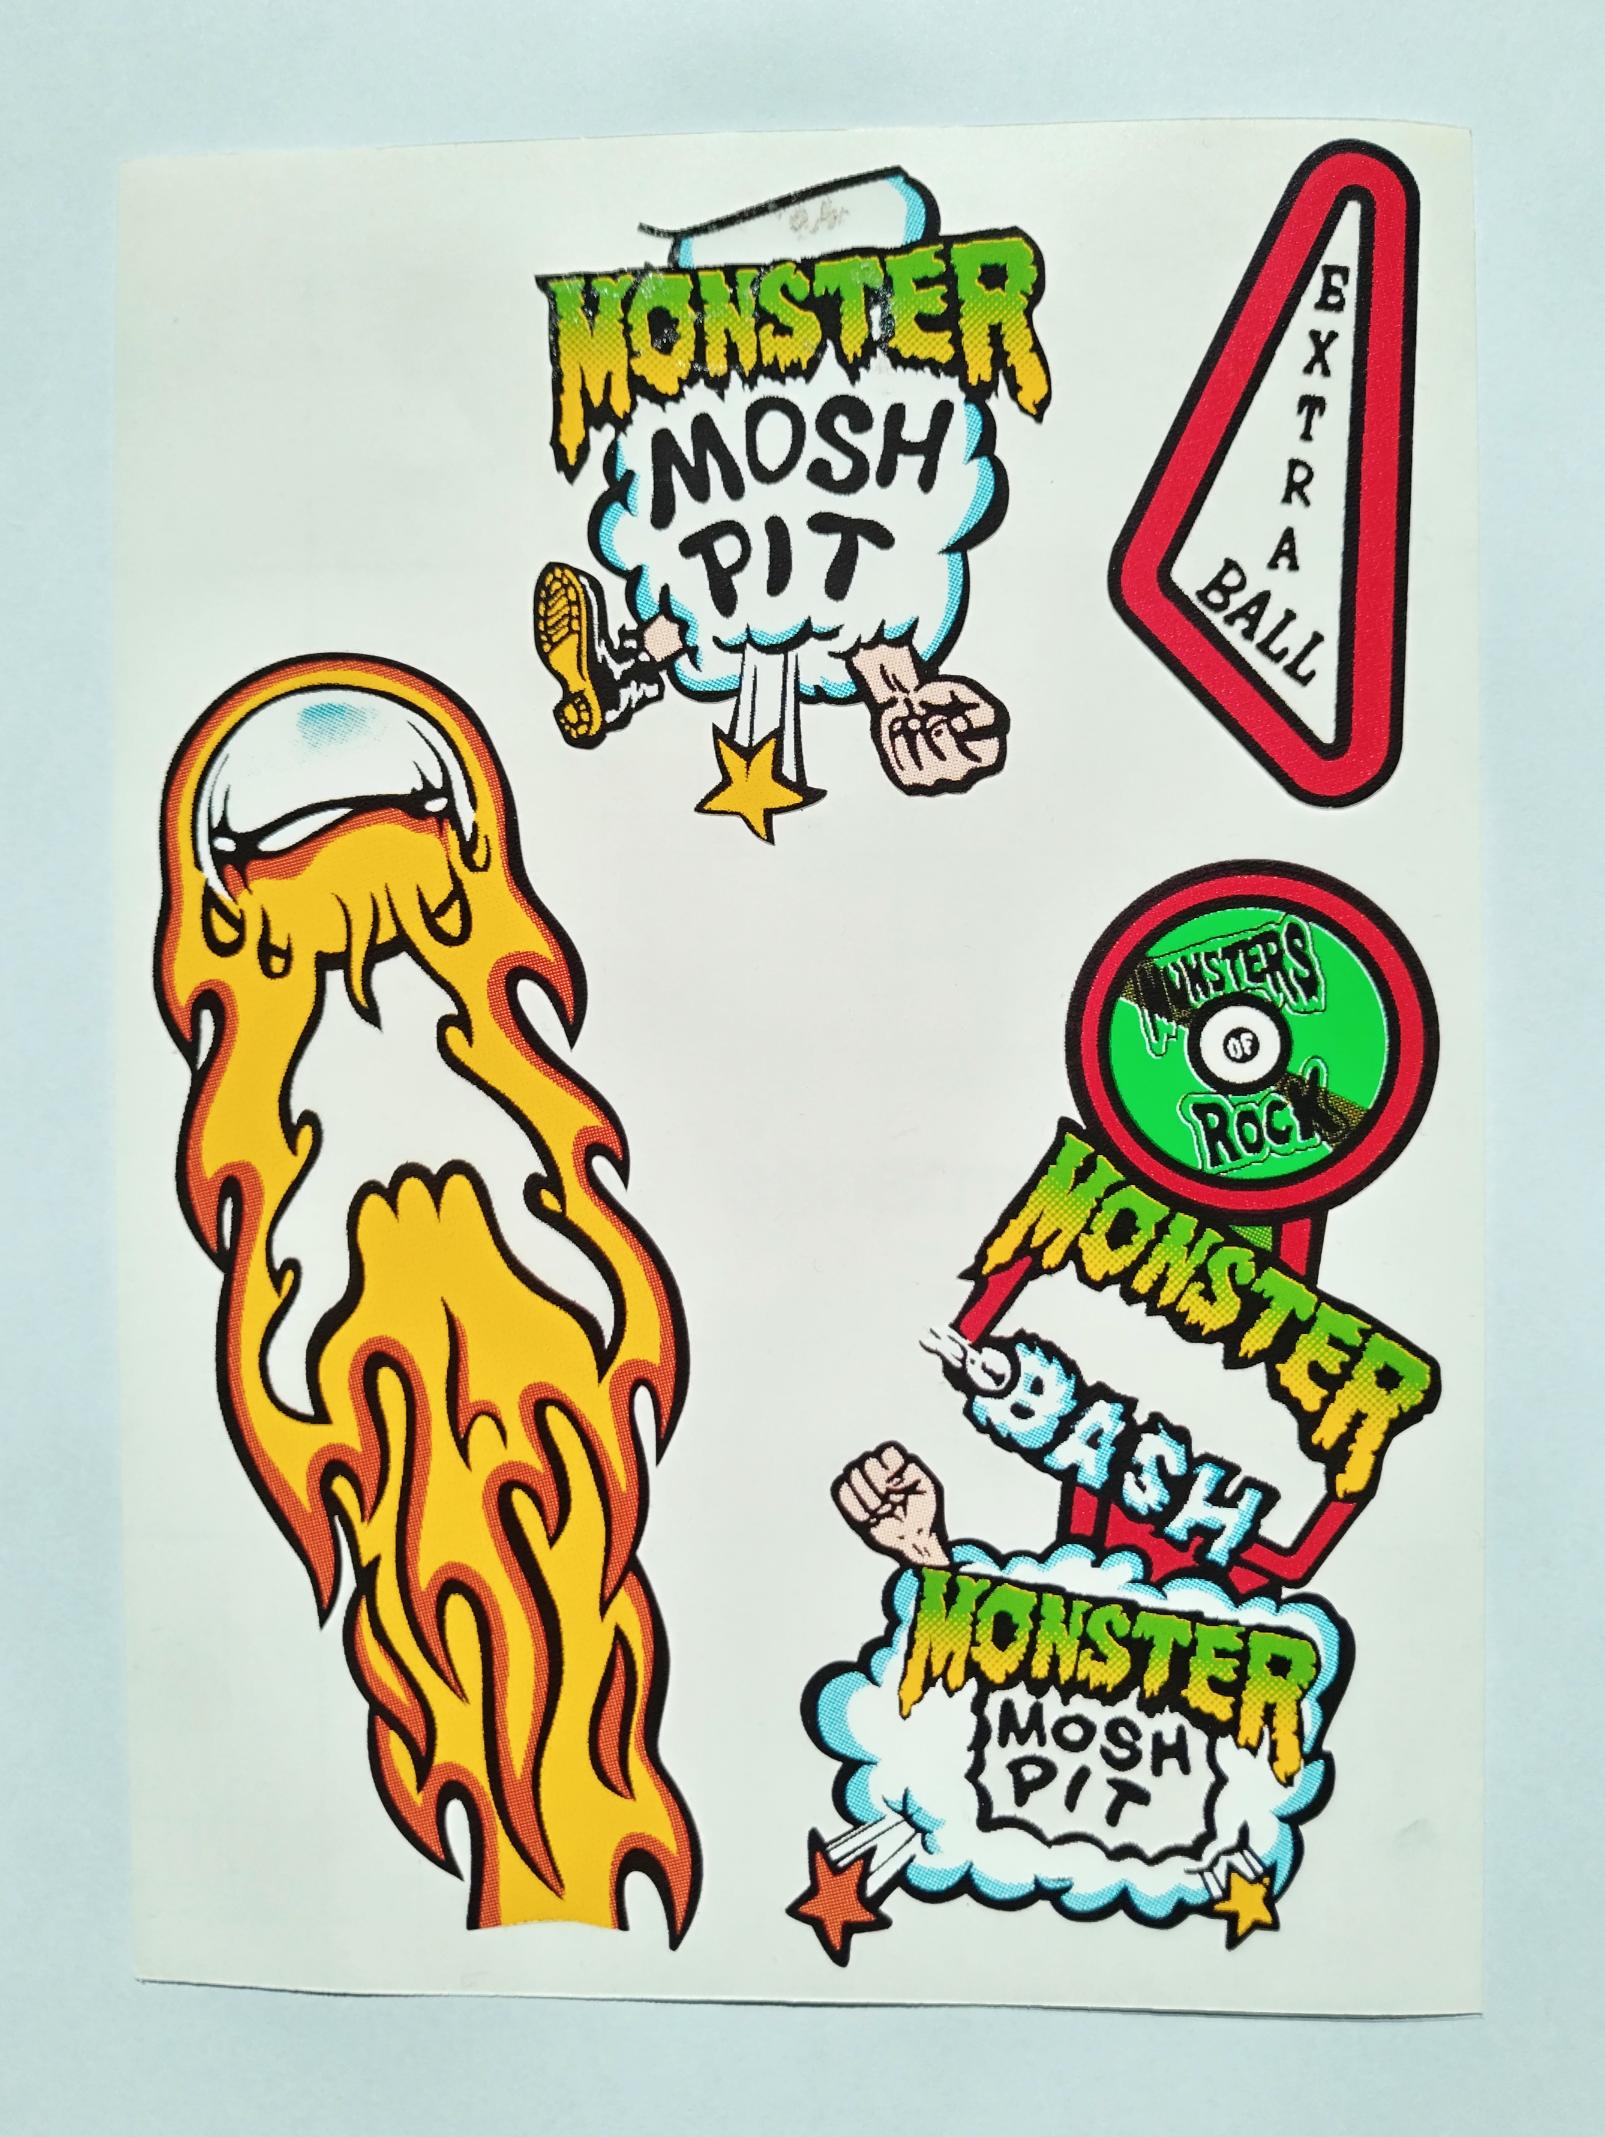 MONSTER
MOSH
PIT
EXTRA
BALL
MONSTERS
OF
ROCK
MONSTER
BASH
MONSTER
MOSH
PIT